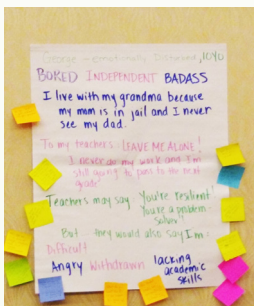 George - emotionally Disturbed, 10yo
BORED INDEPENDENT BADASS
I live with my grandma because
my mom is in jail and I never
see my dad.
To my teachers: LEAVE ME ALONE!
I never do my work and I'm
still going to pass to the next
grade!
Teachers may say You're resilient!
You're a problem-
solver!
But they would also say I'm-
Difficult
Angry Withdrawn lacking
academic
skills